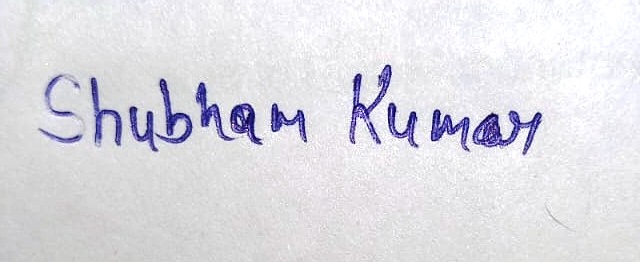 Shubham Kumar